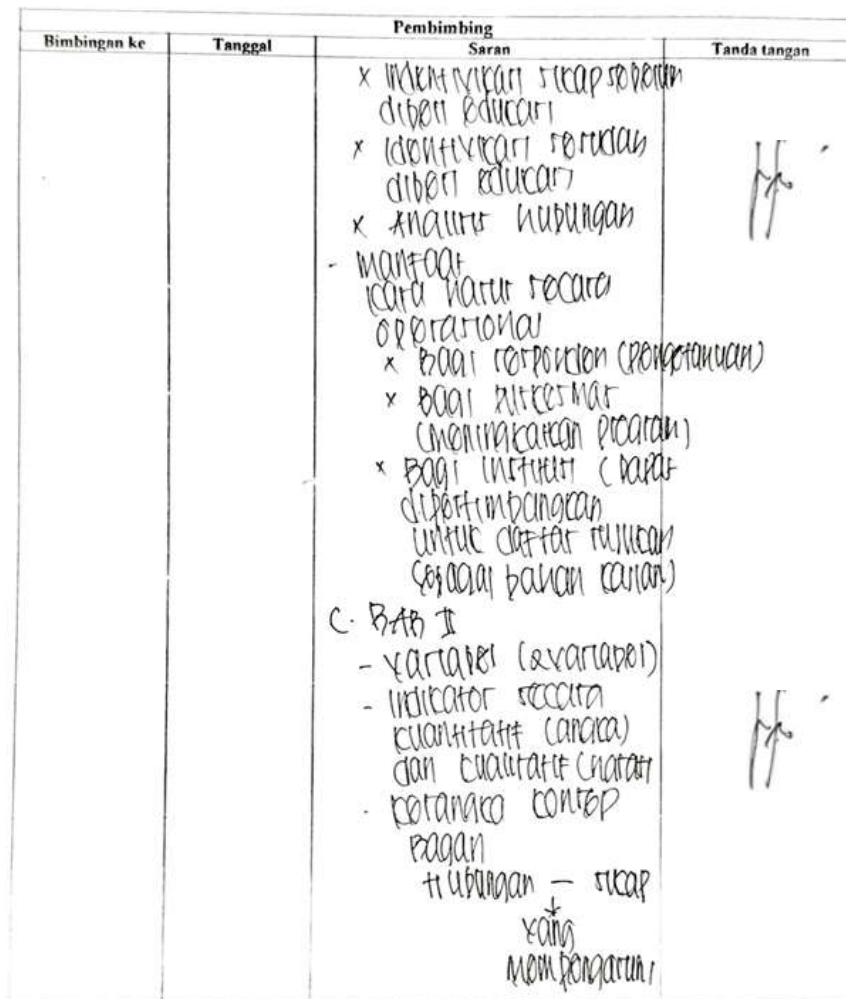 Pembimbing
Bimbingan ke Tanggal Saran Tanda tangan
x Identivikasi sikap sebelum
diberi edukasi
x Identivikasi sesudah
diberi edukasi
x Analisis hubungan
- Manfaat
kata harus secara
operasional
x Bagi responden (pengetahuan)
x Bagi puskesmas
(meningkatkan program)
x Bagi institusi (dapat
dipertimbangkan
untuk daftar rujukan
sebagai bahan kajian)
C. BAB II
- Variabel (2 variabel)
- Indikator secara
kuantitatif (angka)
dan kualitatif (narasi
- kerangka konsep
Bagan
Hubungan — sikap
yang
mempengaruhi